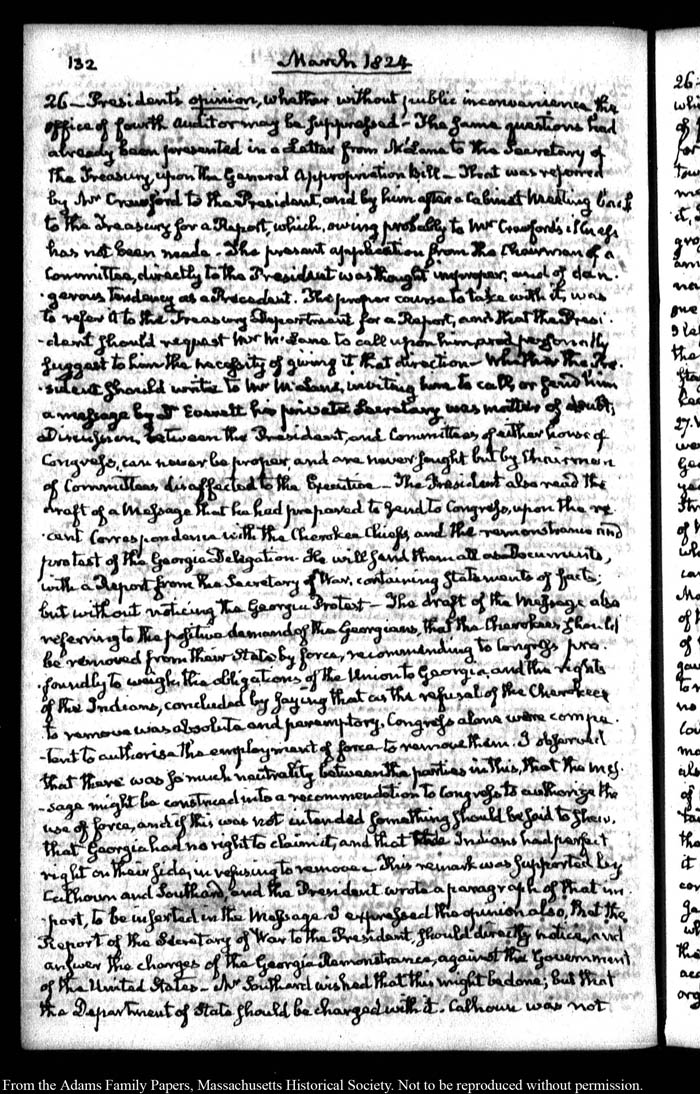 132
March 1824
26 – President's opinion, whether without public inconvenience the
office of fourth Auditor may be suppressed – The same questions had
already been presented in a Letter from McLane to the Secretary of
the Treasury, upon the General Appropriation Bill – That was referred
by Mr Crawford to the President, and by him after a Cabinet Meeting back
to the Treasury for a Report, which, owing probably to Mr Crawford's illness
has not been made. The present application from the Chairman of a
Committee, directly to the President was thought improper, and of dan-
-gerous tendency as a Precedent. The proper course to take with it, was
to refer it to the Treasury Department for a Report, and that the Presi-
-dent should request Mr McLane to call upon him and personally
suggest to him the necessity of giving it that direction – Whether the Pre-
-sident should write to Mr McLane, inviting him to call, or send him
a message by Dr Everett his private Secretary was matter of doubt;
Discussions between the President, and Committees of either house of
Congress, can never be proper, and are never sought but by Chairmen
of Committees disaffected to the Executive – The President also read the
draft of a Message that he had prepared to send to Congress, upon the re-
-cent Correspondence with the Cherokee Chiefs, and the remonstrance and
protest of the Georgia Delegation. He will send them all as Documents,
with a Report from the Secretary of War, containing statements of facts;
but without noticing the Georgia Protest – The draft of the Message also
referring to the positive demand of the Georgians, that the Cherokees should
be removed from their State by force, recommending to Congress pro-
-foundly to weigh the obligations of the Union to Georgia, and the rights
of the Indians, concluded by saying that as the refusal of the Cherokees
to remove was absolute and peremptory, Congress alone were compe-
-tent to authorise the employment of force to remove them. I observed
that there was so much neutrality between the parties in this, that the mes-
-sage might be construed into a recommendation to Congress to authorize the
use of force, and if this was not intended something should be said to shew,
that Georgia had no right to claim it, and that the Indians had perfect
right on their side, in refusing to remove – This remark was supported by
Calhoun and Southard, and the President wrote a paragraph of that im-
-port, to be inserted in the Message. I expressed the opinion also, that the
Report of the Secretary of War to the President, should directly notice, and
answer the charges of the Georgia Remonstrance, against the Government
of the United States – Mr Southard wished that this might be done; but that
the Department of State should be charged with it. Calhoun was not
From the Adams Family Papers, Massachusetts Historical Society. Not to be reproduced without permission.